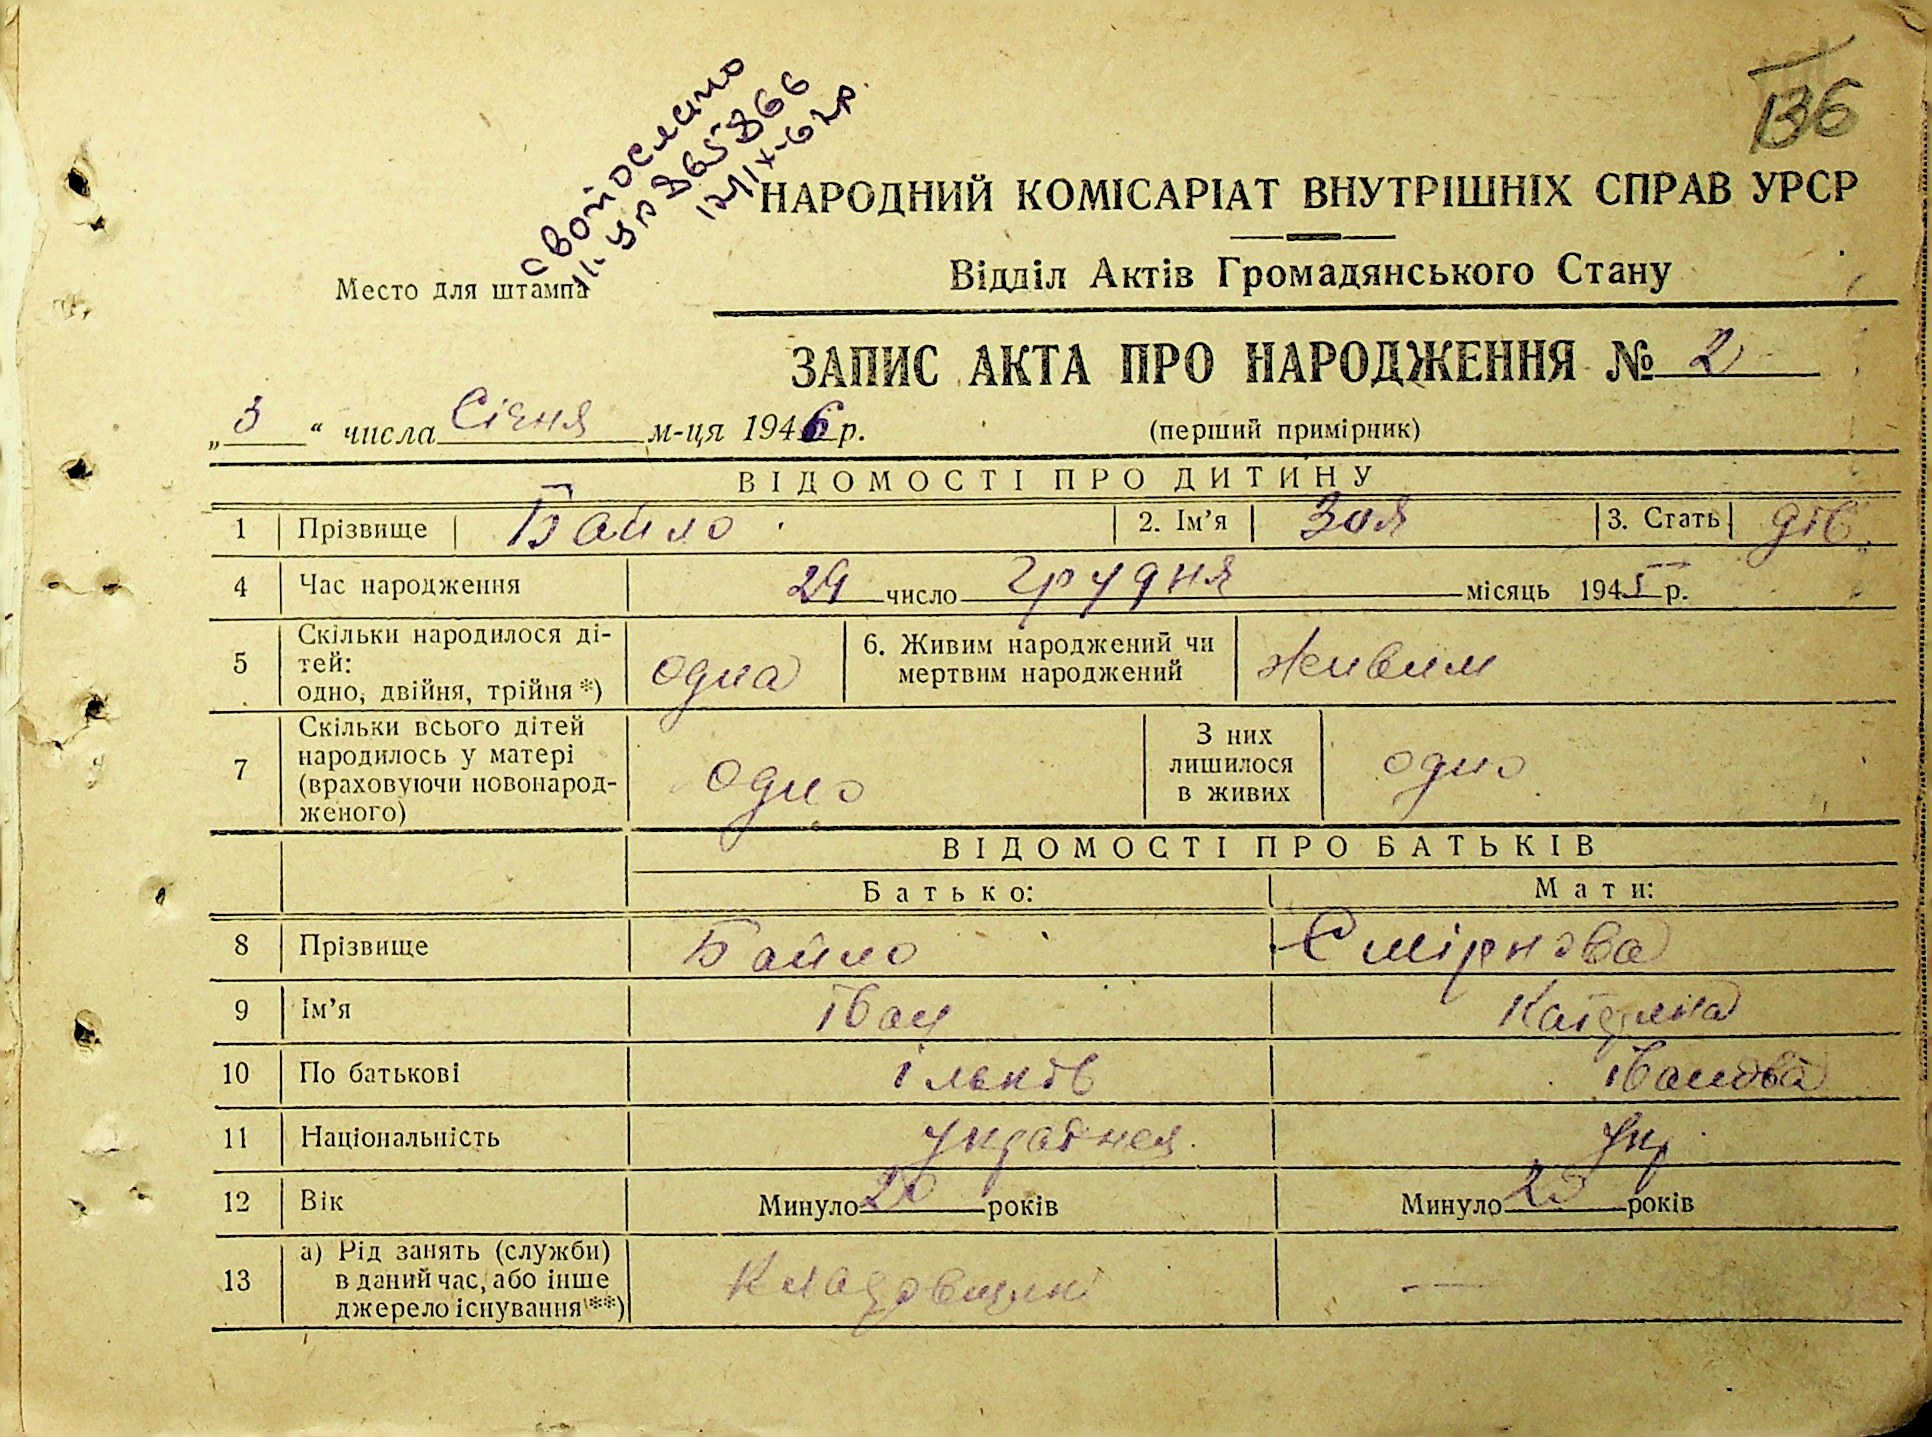 136
свой ослано
ур 865866
12/ІХ-62р.
НАРОДНИЙ КОМІСАРІАТ ВНУТРІШНІХ СПРАВ УРСР
Место для штампа
Відділ Актів Громадянського Стану
ЗАПИС АКТА ПРО НАРОДЖЕННЯ № 2
„3“ числа Січня м-ця 1946 р. (перший примірник)
ВІДОМОСТІ ПРО ДИТИНУ
1 Прізвище Байло 2. Ім’я Зоя 3. Стать дів.
4 Час народження 29 число грудня місяць 1945 р.
5 Скільки народилося ді-
тей:
одно, двійня, трійня*) одна 6. Живим народжений чи
мертвим народжений живим
7 Скільки всього дітей
народилось у матері
(враховуючи новонарод-
женого) одно З них
лишилося
в живих одно
ВІДОМОСТІ ПРО БАТЬКІВ
Батько: Мати:
8 Прізвище Байло Смірнова
9 Ім’я Іван Катерина
10 По батькові Ільков Іванова
11 Національність Укр
12 Вік Минуло 20 років Минуло 20 років
13 а) Рід занять (служби)
в даний час, або інше
джерело існування**) Кладовщик —